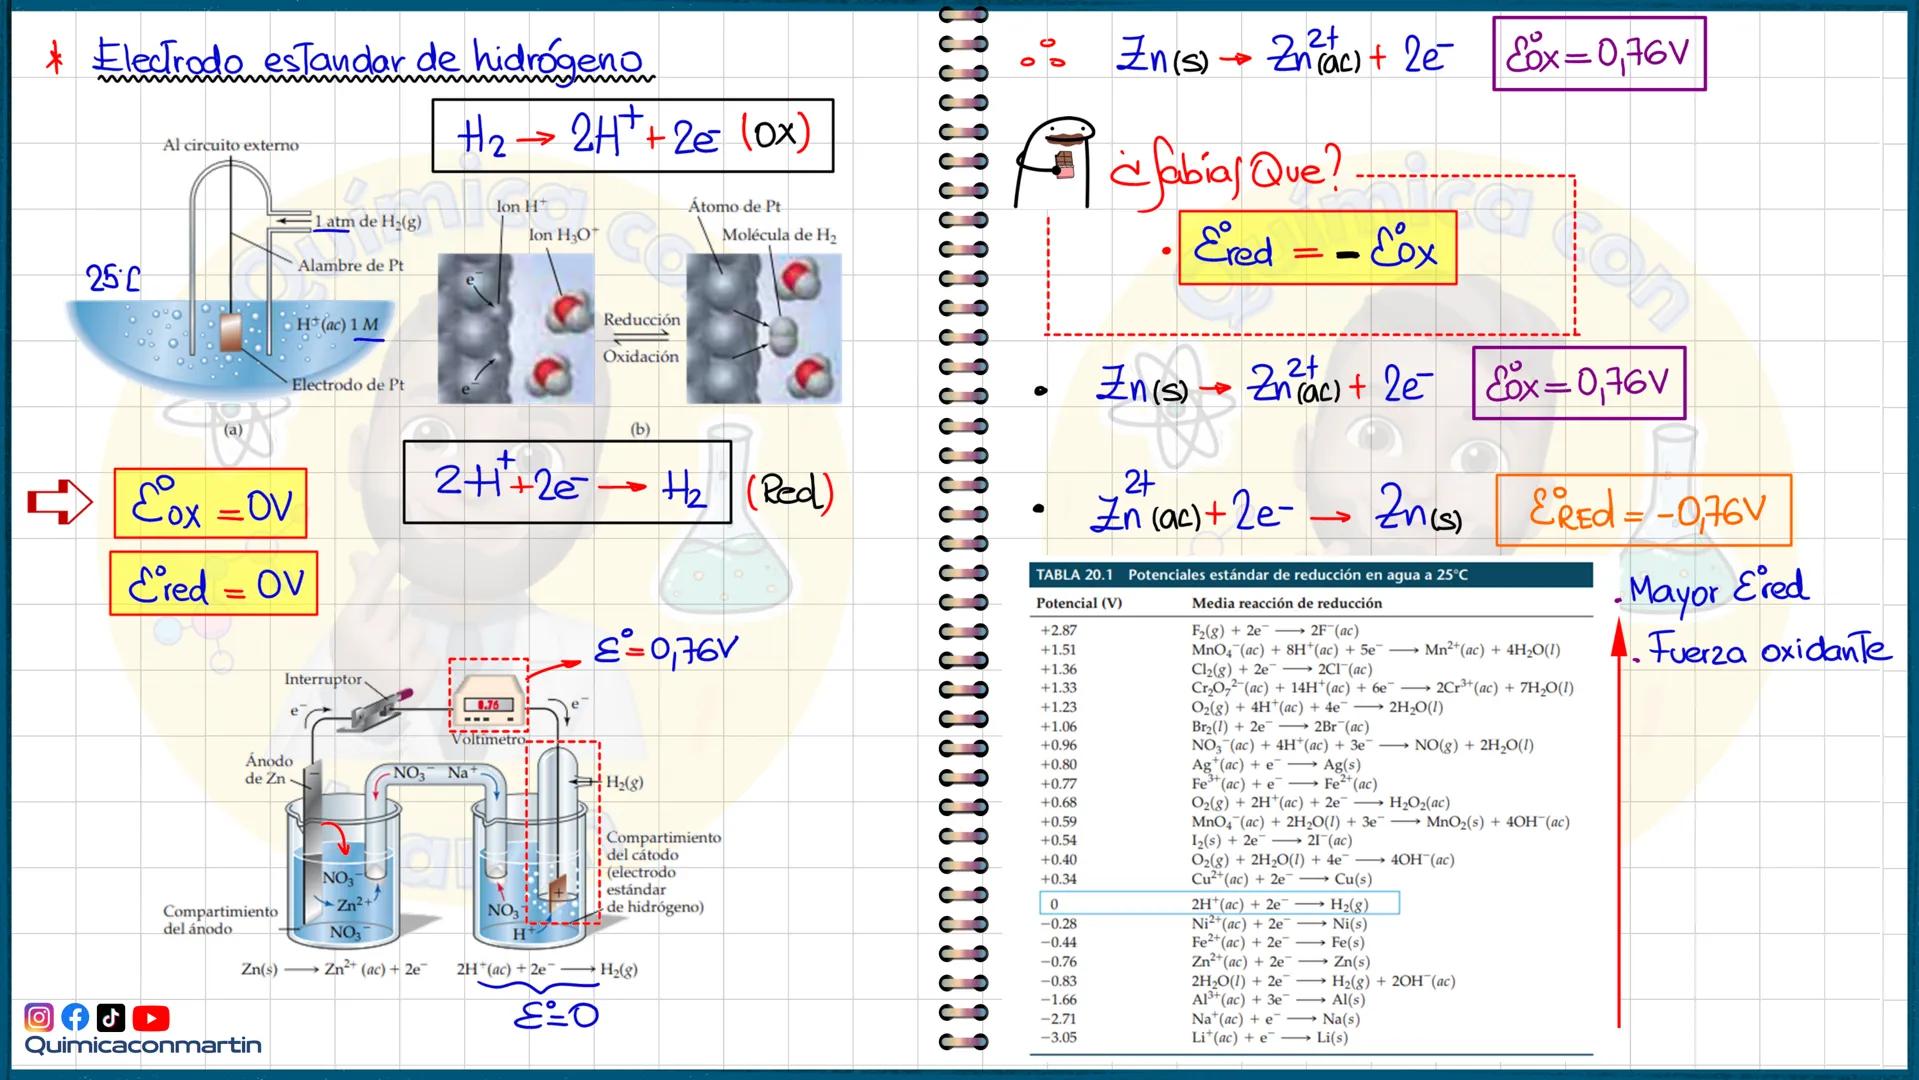 * Electrodo estandar de hidrógeno
H₂ → 2H⁺ + 2e⁻ (ox)
Al circuito externo
1 atm de H₂(g)
Alambre de Pt
25°C
H⁺(ac) 1 M
Electrodo de Pt
(a)
Ion H⁺
Ion H₃O⁺
e⁻
e⁻
Reducción
Oxidación
Átomo de Pt
Molécula de H₂
(b)
2H⁺ + 2e⁻ → H₂ (Red)
Ɛ°ox = 0V
Ɛ°red = 0V
Ɛ° = 0,76V
Interruptor
e⁻
0.76
Voltímetro
e⁻
Ánodo
de Zn
−
NO₃⁻ Na⁺
H₂(g)
Compartimiento
del cátodo
(electrodo
estándar
de hidrógeno)
NO₃⁻
Zn²⁺
NO₃⁻
Compartimiento
del ánodo
+
NO₃⁻
H⁺
Zn(s) ⟶ Zn²⁺ (ac) + 2e⁻
2H⁺(ac) + 2e⁻ ⟶ H₂(g)
Ɛ° = 0
Quimicaconmartin
∴ Zn(s) → Zn²⁺(ac) + 2e⁻ Ɛ°ox = 0,76V
¿Sabías Que?
• Ɛ°red = - Ɛ°ox
• Zn(s) → Zn²⁺(ac) + 2e⁻ Ɛ°ox = 0,76V
• Zn²⁺(ac) + 2e⁻ → Zn(s) Ɛ°REd = -0,76V
TABLA 20.1 Potenciales estándar de reducción en agua a 25°C
Potencial (V) Media reacción de reducción
+2.87 F₂(g) + 2e⁻ ⟶ 2F⁻(ac)
+1.51 MnO₄⁻(ac) + 8H⁺(ac) + 5e⁻ ⟶ Mn²⁺(ac) + 4H₂O(l)
+1.36 Cl₂(g) + 2e⁻ ⟶ 2Cl⁻(ac)
+1.33 Cr₂O₇²⁻(ac) + 14H⁺(ac) + 6e⁻ ⟶ 2Cr³⁺(ac) + 7H₂O(l)
+1.23 O₂(g) + 4H⁺(ac) + 4e⁻ ⟶ 2H₂O(l)
+1.06 Br₂(l) + 2e⁻ ⟶ 2Br⁻(ac)
+0.96 NO₃⁻(ac) + 4H⁺(ac) + 3e⁻ ⟶ NO(g) + 2H₂O(l)
+0.80 Ag⁺(ac) + e⁻ ⟶ Ag(s)
+0.77 Fe³⁺(ac) + e⁻ ⟶ Fe²⁺(ac)
+0.68 O₂(g) + 2H⁺(ac) + 2e⁻ ⟶ H₂O₂(ac)
+0.59 MnO₄⁻(ac) + 2H₂O(l) + 3e⁻ ⟶ MnO₂(s) + 4OH⁻(ac)
+0.54 I₂(s) + 2e⁻ ⟶ 2I⁻(ac)
+0.40 O₂(g) + 2H₂O(l) + 4e⁻ ⟶ 4OH⁻(ac)
+0.34 Cu²⁺(ac) + 2e⁻ ⟶ Cu(s)
0 2H⁺(ac) + 2e⁻ ⟶ H₂(g)
−0.28 Ni²⁺(ac) + 2e⁻ ⟶ Ni(s)
−0.44 Fe²⁺(ac) + 2e⁻ ⟶ Fe(s)
−0.76 Zn²⁺(ac) + 2e⁻ ⟶ Zn(s)
−0.83 2H₂O(l) + 2e⁻ ⟶ H₂(g) + 2OH⁻(ac)
−1.66 Al³⁺(ac) + 3e⁻ ⟶ Al(s)
−2.71 Na⁺(ac) + e⁻ ⟶ Na(s)
−3.05 Li⁺(ac) + e⁻ ⟶ Li(s)
. Mayor Ɛ°red
. Fuerza oxidante
Química con
Química con